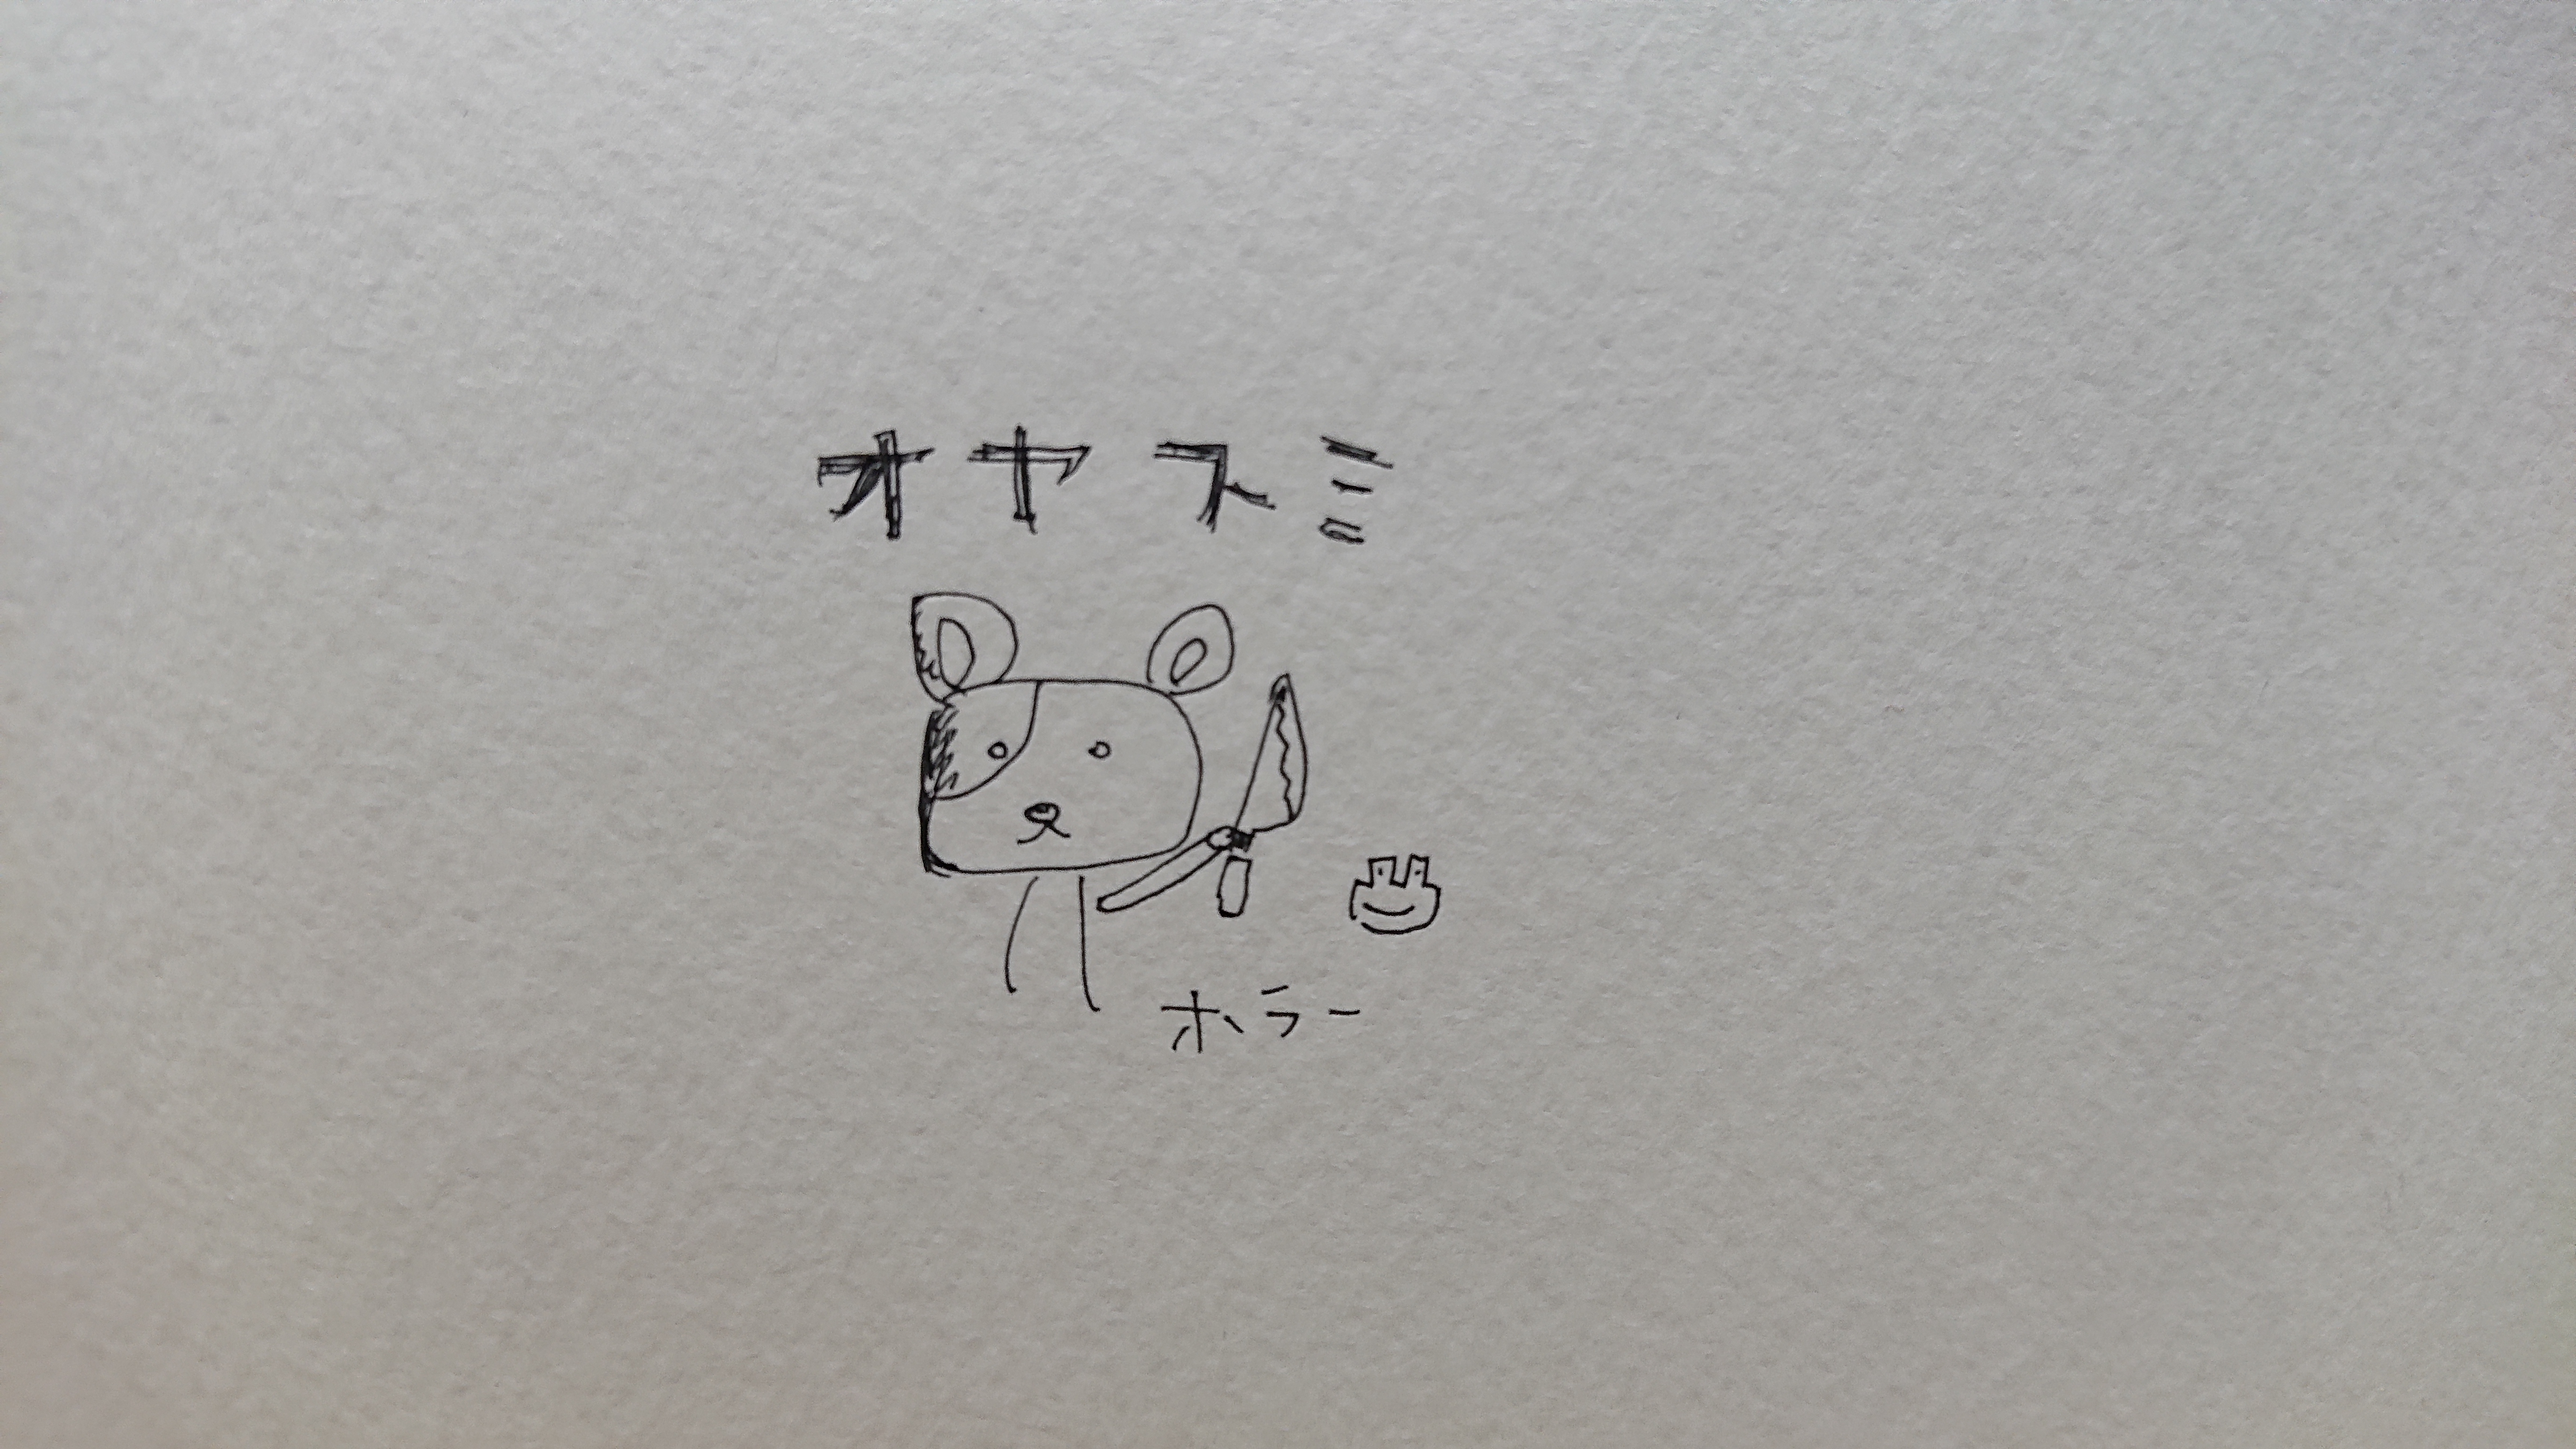 オヤスミ
ホラー